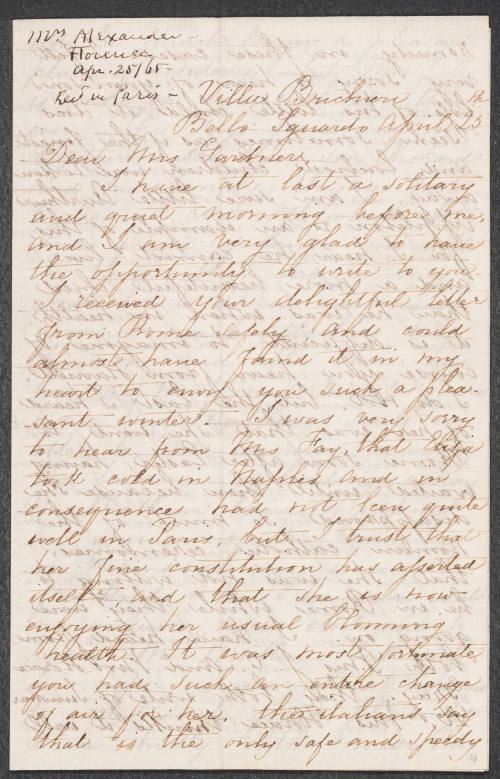 Mrs Alexander -
Florence
Apr. 25/65 -
Rec'd in Paris -
Villa Brichieri
Bello Sguardo April 25th
Dear Mrs Gardner,
I have at last a solitary
and quiet morning before me,
and I am very glad to have
the opportunity to write to you.
I received your delightful letter
from Rome safely and could
almost have found it in my
heart to envy you such a plea-
sant winter. I was very sorry
to hear from Mrs Fay, that Eliza
took cold in Naples and in
consequence had not been quite
well in Paris, but I trust that
her fine constitution has asserted
itself and that she is now
enjoying her usual blooming
health. It was most fortunate
you had such an entire change
of air for her. The italians say
that is the only safe and speedy